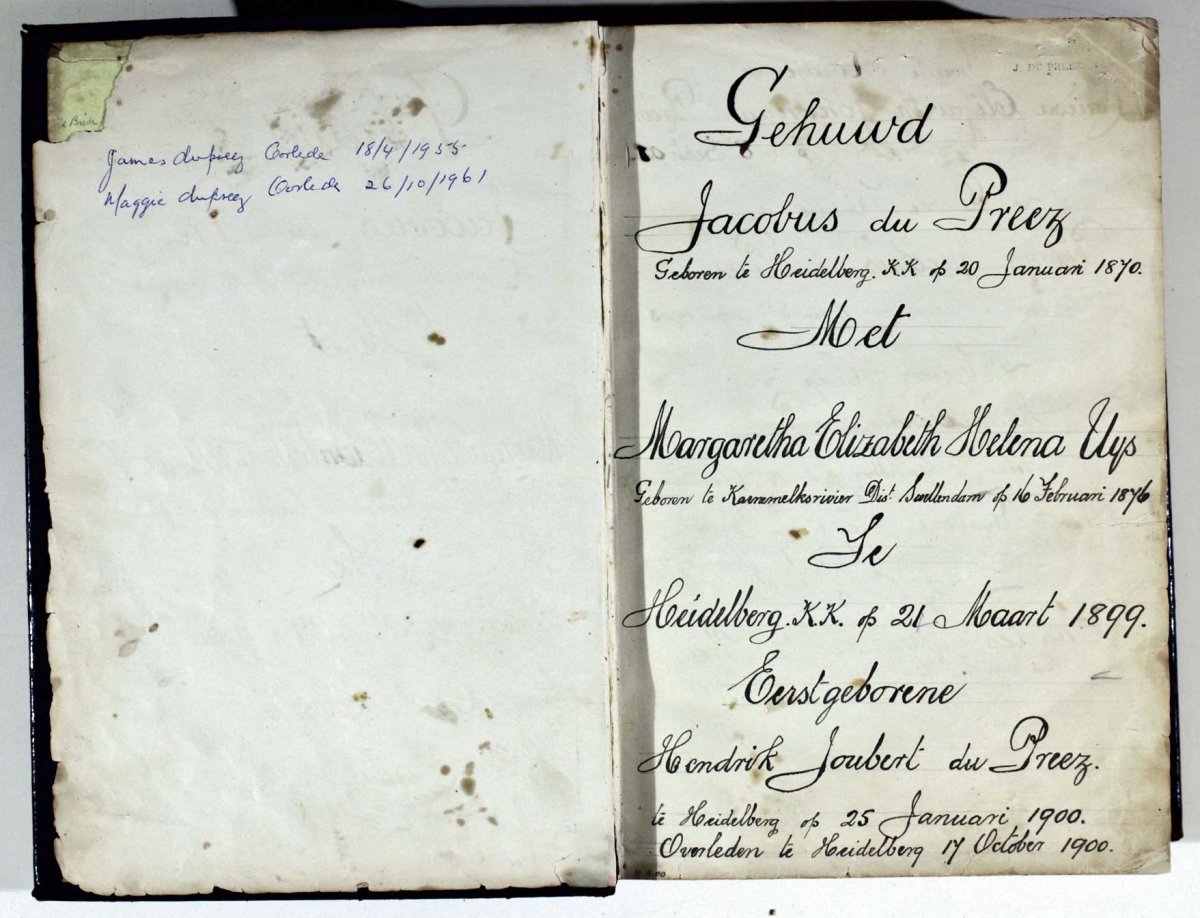 James dupreez Oorlede 18/4/1955
Maggie dupreez Oorlede 26/10/1961
J. DU PREEZ
Gehuwd
Jacobus du Preez
Geboren te Heidelberg. K.K op 20 Januari 1870.
Met
Margaretha Elizabeth Helena Uys
Geboren te Karnemelksrivier Dist. Swellendam op 16 Februari 1876
Te
Heidelberg. K.K. op 21 Maart 1899.
Eerstgeborene
Hendrik Joubert du Preez.
te Heidelberg op 25 Januari 1900.
Overleden te Heidelberg 17 October 1900.